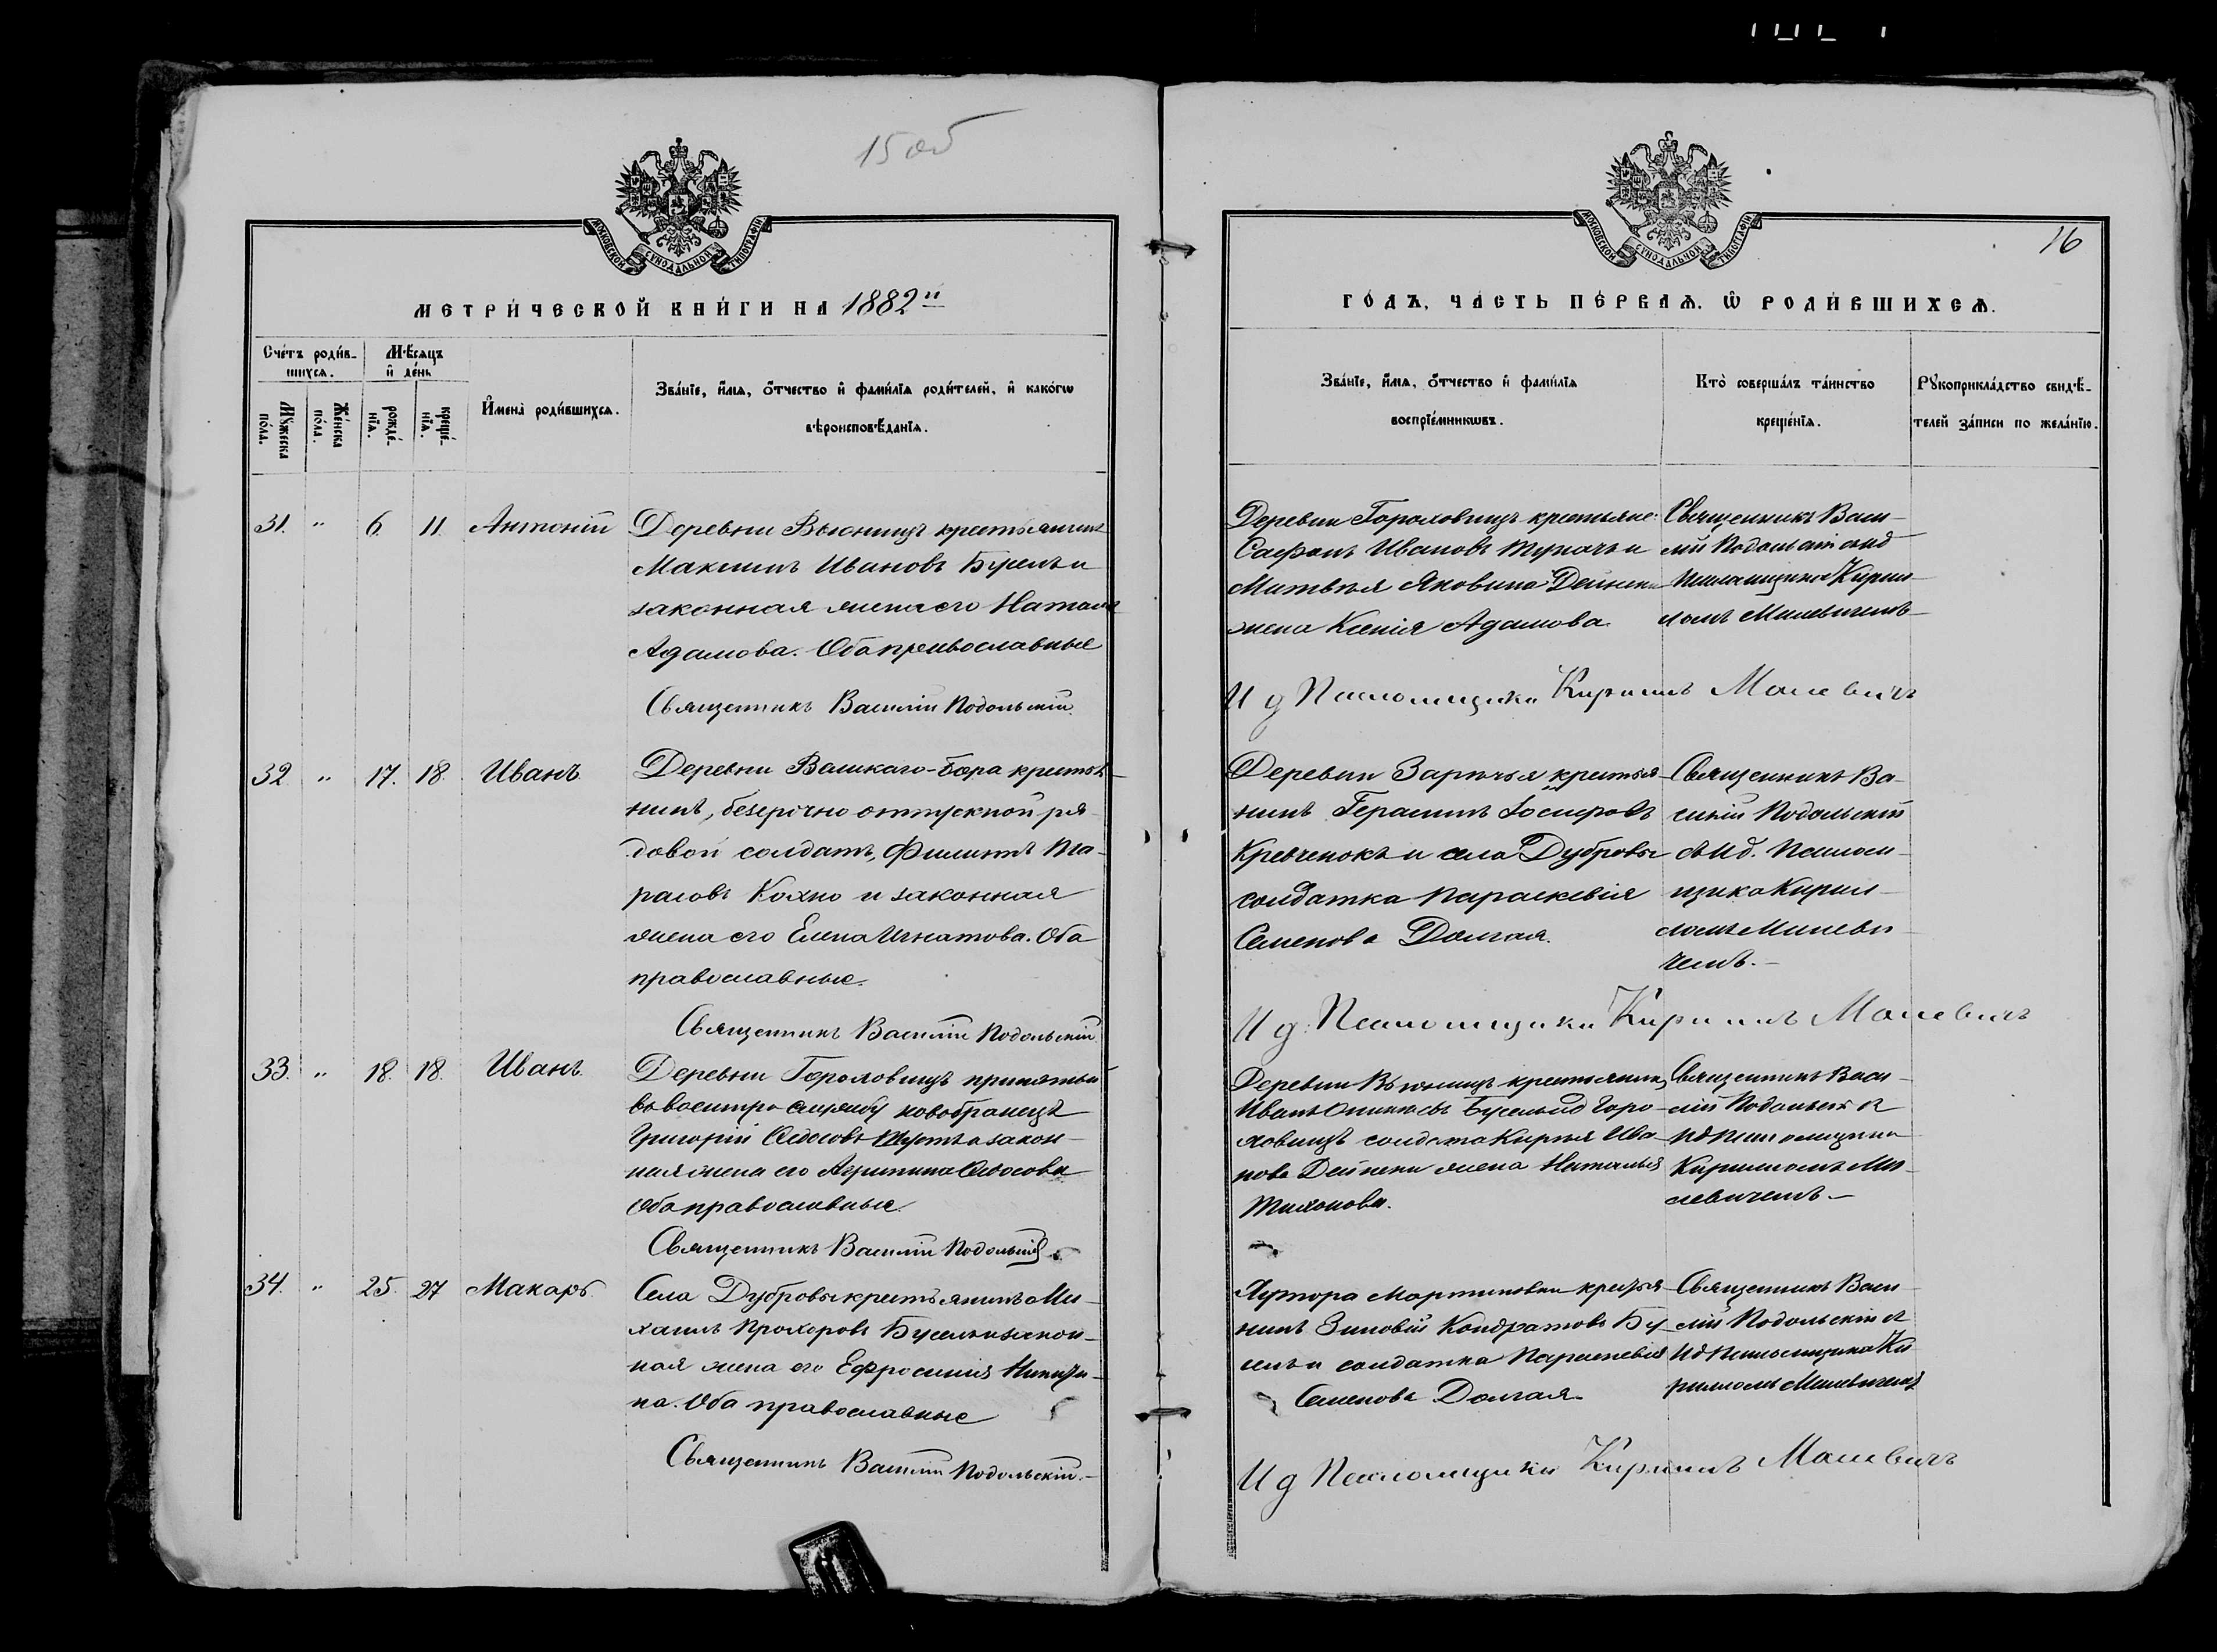 15 об
МОСКОВСКОЙ СѴНОДАЛЬНОЙ ТИПОГРАФІИ
МЕТРИ́ЧЕСКОЙ КНИ́ГИ НА 1882й
Сче́тъ роди́в-
шихсѧ.
Мѣ́сѧцъ
и҆ де́нь
Мꙋ́жеска
по́ла.
Же́нска
по́ла.
рожде́-
нїѧ.
креще́-
нїѧ.
И҆мена̀ роди́вшихсѧ.
Зва́нїе, и҆́мѧ, ѻ҆́тчество и҆ фами́лїѧ роди́телей, и҆ како́гѡ
вѣроисповѣ́данїѧ.
31. " 6. 11. Антоній
Деревни Вьюнищъ крестьянинъ
Максимъ Ивановъ Бусель и
законная жена его Наталія
Адамова. Оба православные
Священникъ Василій Подольскій.
32 " 17. 18. Иванъ.
Деревни Великаго-Бора крестья-
нинъ, безсрочно отпускной ря-
довой солдатъ, Филиппъ Та-
расовъ Кохно и законная
жена его Елена Игнатова. Оба
православные.
Священникъ Василій Подольскій.
33. " 18. 18. Иванъ.
Деревни Гороховищъ принятый
въ военную службу новобранецъ
Григорій и закон-
ная жена его Агрипина
Оба православные.
Священникъ Василій Подольскій
34. " 25. 27 Макаръ.
Села Дубровы крестьянинъ Ми-
хаилъ Прохоровъ Бусель и закон-
ная жена его Ефросинія Никити-
на. Оба православные
Священникъ Василій Подольскій.-
16
МОСКОВСКОЙ СѴНОДАЛЬНОЙ ТИПОГРАФІИ
ГО́ДЪ, ЧА́СТЬ ПЕ́РВАѦ, Ѡ҆ РОДИ́ВШИХСѦ.
Зва́нїе, и҆́мѧ, ѻ҆́тчество и҆ фами́лїѧ
воспрїе́мникѡвъ.
Кто̀ соверша́лъ та́инство
креще́нїѧ.
Рꙋкоприкла́дство свидѣ́-
телей за́писи по жела́нїю.
Деревни Гороховищъ крестьяне:
Сафонъ Ивановъ и
Матвѣя Яковина Дейнеки
жена Ксенія Адамова.
Священникъ Васи-
лій Подольскій съ ид
Псаломщика Кирил-
ломъ Малевичемъ
И д Псаломщика Кириллъ Малевичъ
Деревни Зарѣчья крестья-
нинъ Герасимъ Іосифовъ
Кревченокъ и села Дубровы
солдатка Параскевія
Семенова Долгая.
Священникъ Ва-
силій Подольскій
съ И д. Псалом-
щика Кирил-
ломъ Малеви-
чемъ.-
И д. Псаломщика Кириллъ Малевичъ
Деревни Вьюнищъ крестьянинъ
Иванъ Бусель и д Горо-
ховищъ солдата Кирила Ива-
нова Дейнеки жена Наталія
Тихонова.
Священникъ Васи-
лій Подольскій съ
Ид Псаломщика
Кирилломъ Ма-
левичемъ.-
Хутора Мартиновки крестья-
нинъ Зиновій Кондратовъ Бу-
сель и солдатка Параскевія
Семенова Долгая.
Священникъ Васи-
лій Подольскій съ
Ид Псаломщика Ки-
рилломъ Малевичемъ
И д Псаломщика Кириллъ Малевичъ